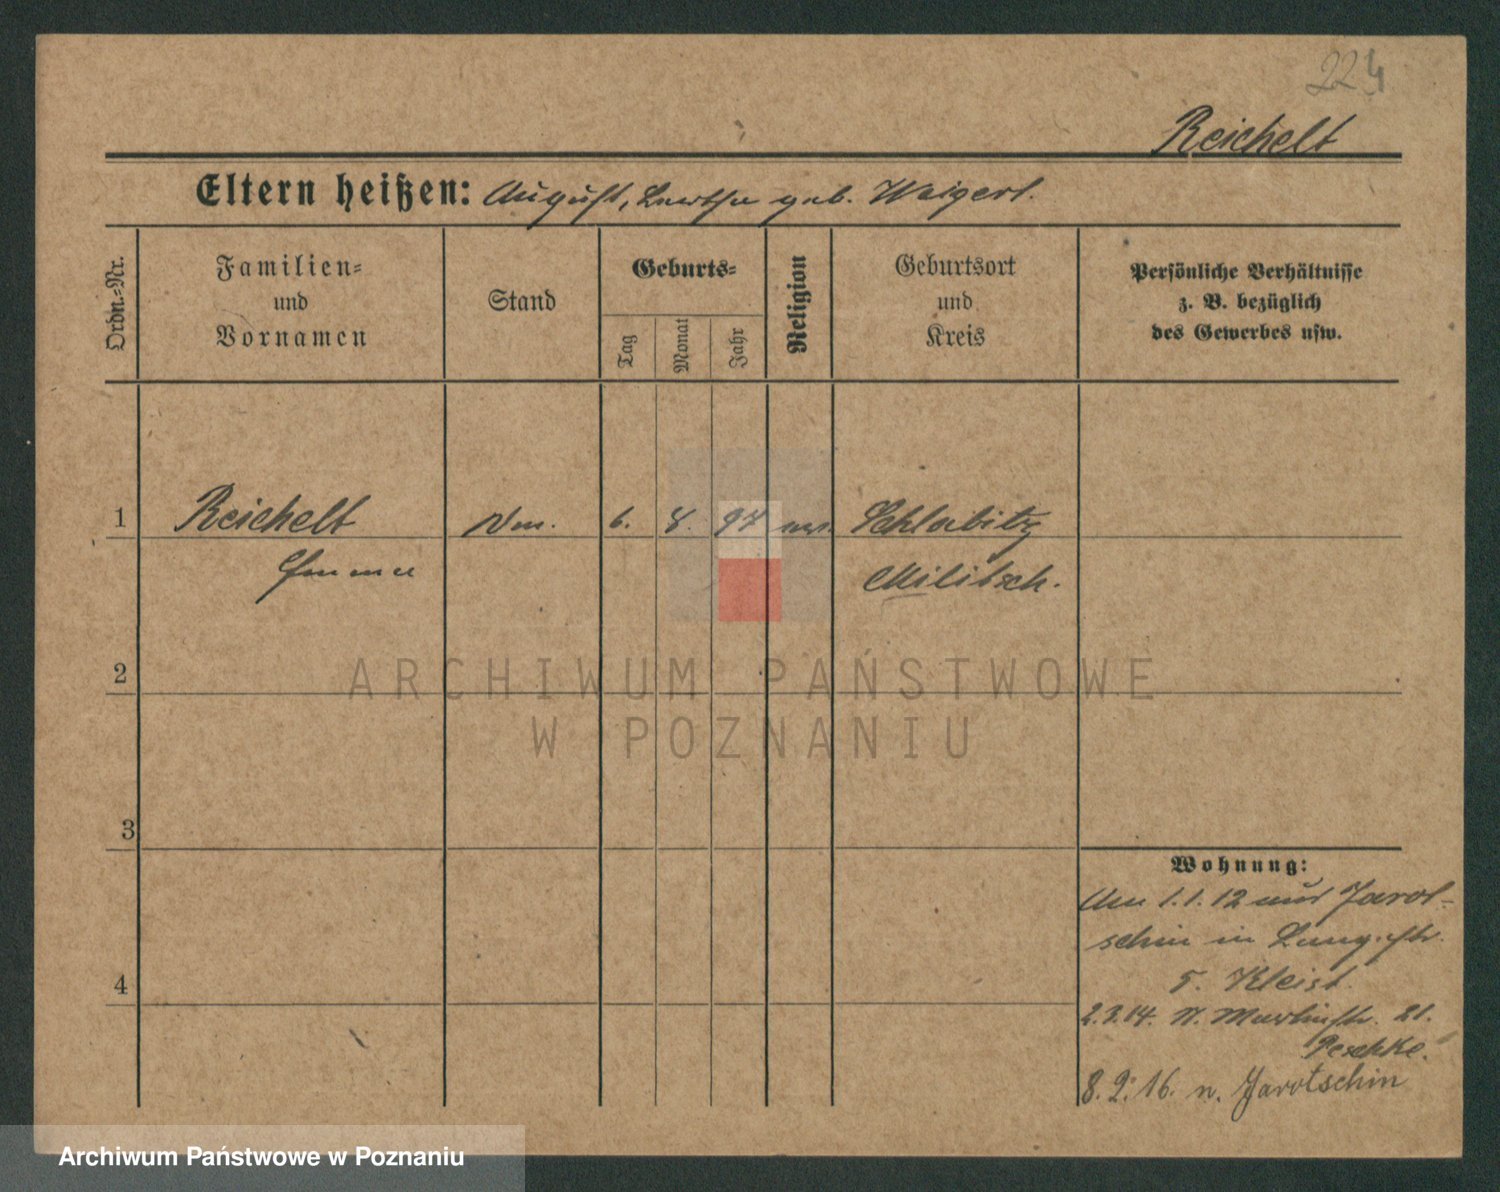 224
Reichelt
Eltern heißen: August, Bertha geb. Weigert.
Ordn.-Nr.
Familien-
und
Vornamen
Stand
Geburts-
Tag
Monat
Jahr
Religion
Geburtsort
und
Kreis
Persönliche Verhältnisse
z. B. bezüglich
des Gewerbes usw.
1 Reichelt 6. 8. 97 Schlabitz
Emma Militsch.
2
ARCHIWUM PAŃSTWOWE
W POZNANIU
3
4
Wohnung:
Am 1.1.12 aus Jarot-
schin in
5. Kleist.
2.3.14. N. Martinstr. 21.
Peschke.
8.2.16. n. Jarotschin
Archiwum Państwowe w Poznaniu